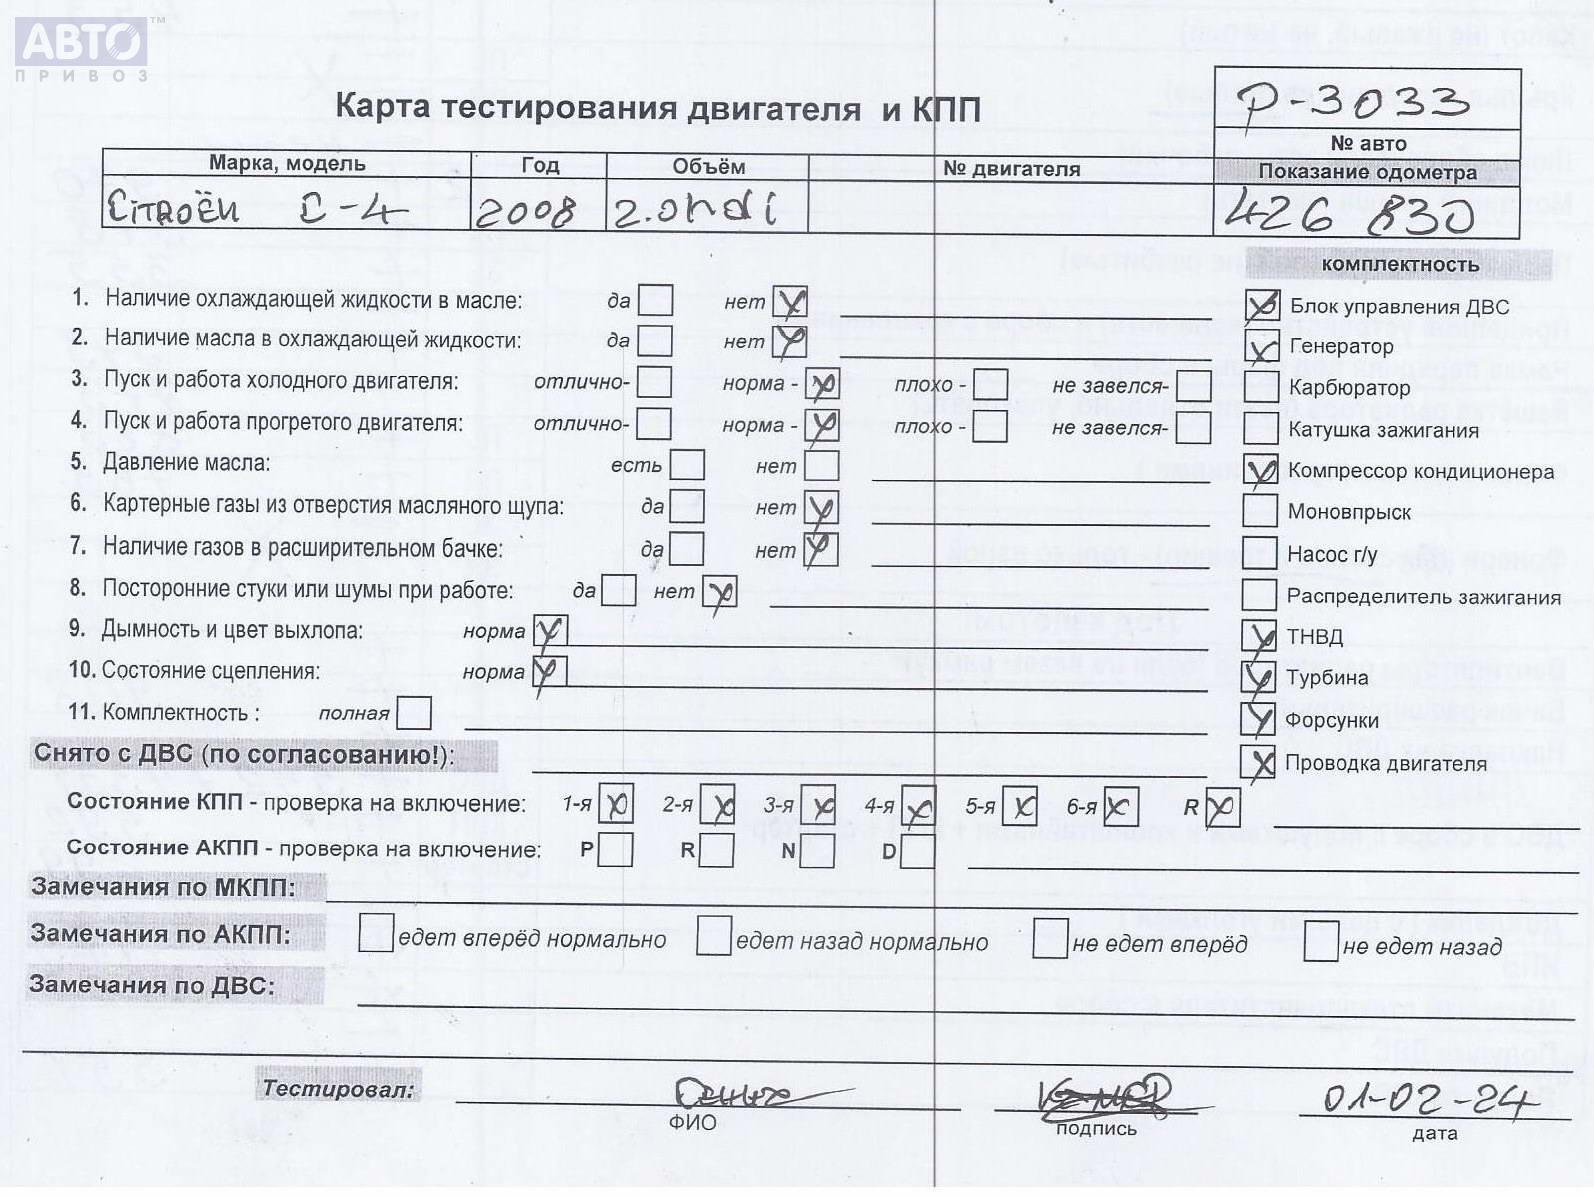 АВТО™
ПРИВОЗ
Карта тестирования двигателя и КПП
P-3033
№ авто
Марка, модель Год Объём № двигателя Показание одометра
CiTROËN C-4 2008 2.0HDi 426 830
комплектность
1. Наличие охлаждающей жидкости в масле: да нет
Блок управления ДВС
2. Наличие масла в охлаждающей жидкости: да нет
Генератор
3. Пуск и работа холодного двигателя: отлично- норма - плохо - не завелся-
Карбюратор
4. Пуск и работа прогретого двигателя: отлично- норма - плохо - не завелся-
Катушка зажигания
5. Давление масла: есть нет
Компрессор кондиционера
6. Картерные газы из отверстия масляного щупа: да нет
Моновпрыск
7. Наличие газов в расширительном бачке: да нет
Насос г/у
8. Посторонние стуки или шумы при работе: да нет
Распределитель зажигания
9. Дымность и цвет выхлопа: норма
ТНВД
10. Состояние сцепления: норма
Турбина
11. Комплектность : полная
Форсунки
Снято с ДВС (по согласованию!):
Проводка двигателя
Состояние КПП - проверка на включение: 1-я 2-я 3-я 4-я 5-я 6-я R
Состояние АКПП - проверка на включение: P R N D
Замечания по МКПП:
Замечания по АКПП: едет вперёд нормально едет назад нормально не едет вперёд не едет назад
Замечания по ДВС:
Тестировал: 01-02-24
ФИО подпись дата